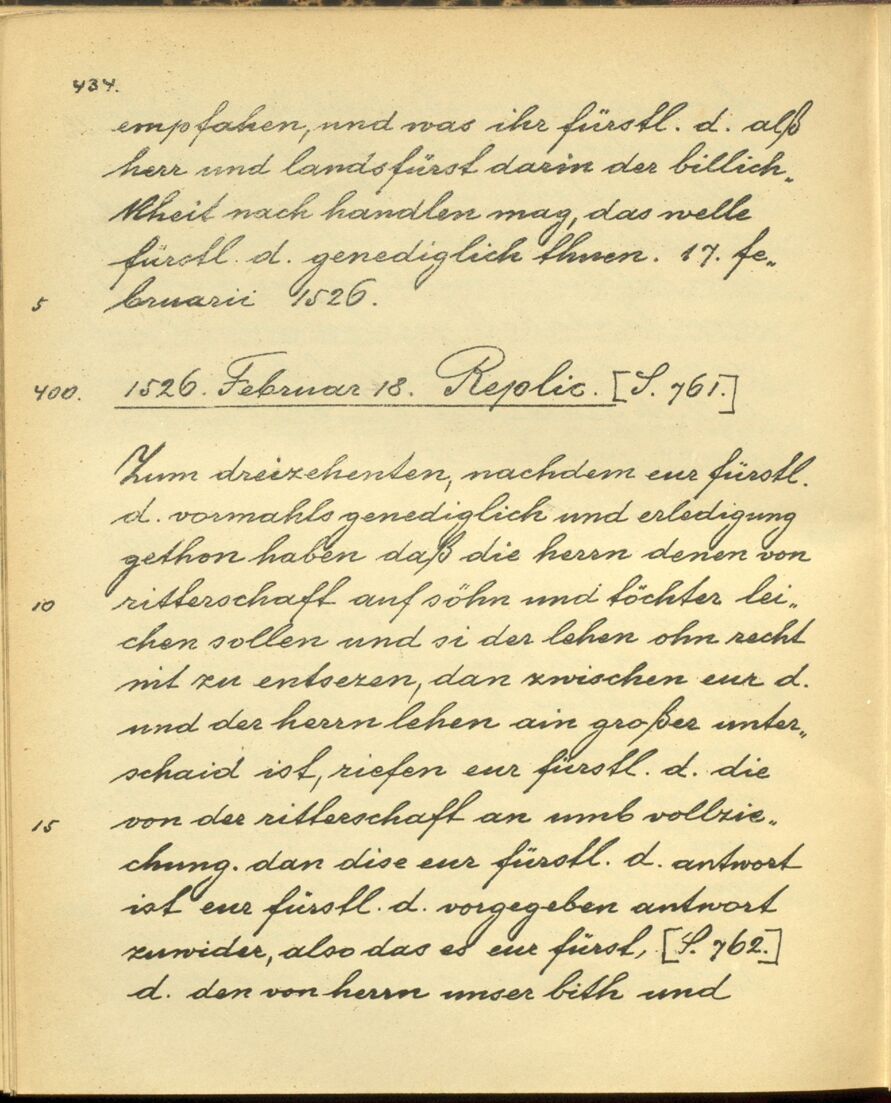 434.
empfahen, und was ihr fürstl. d. alß
herr und landsfürst darin der billich„
kheit nach handlen mag, das welle
fürstl. d. genediglich thuen. 17. fe„
5 bruarii 1526.
400. 1526. Februar 18. Replic. [S. 761.]
Zum dreizehenten, nachdem eur fürstl.
d. vormahls genediglich und erledigung
gethon haben daß die herrn denen von
10 ritterschaft auf söhn und töchter lei„
chen sollen und si der lehen ohn recht
nit zu entsezen, dan zwischen eur d.
und der herrn lehen ain großer unter„
schaid ist, riefen eur fürstl. d. die
15 von der ritterschaft an umb vollzie„
chung. dan dise eur fürstl. d. antwort
ist eur fürstl. d. vorgegeben antwort
zuwider, also das es eur fürst, [S. 762.]
d. den von herrn unser bith und